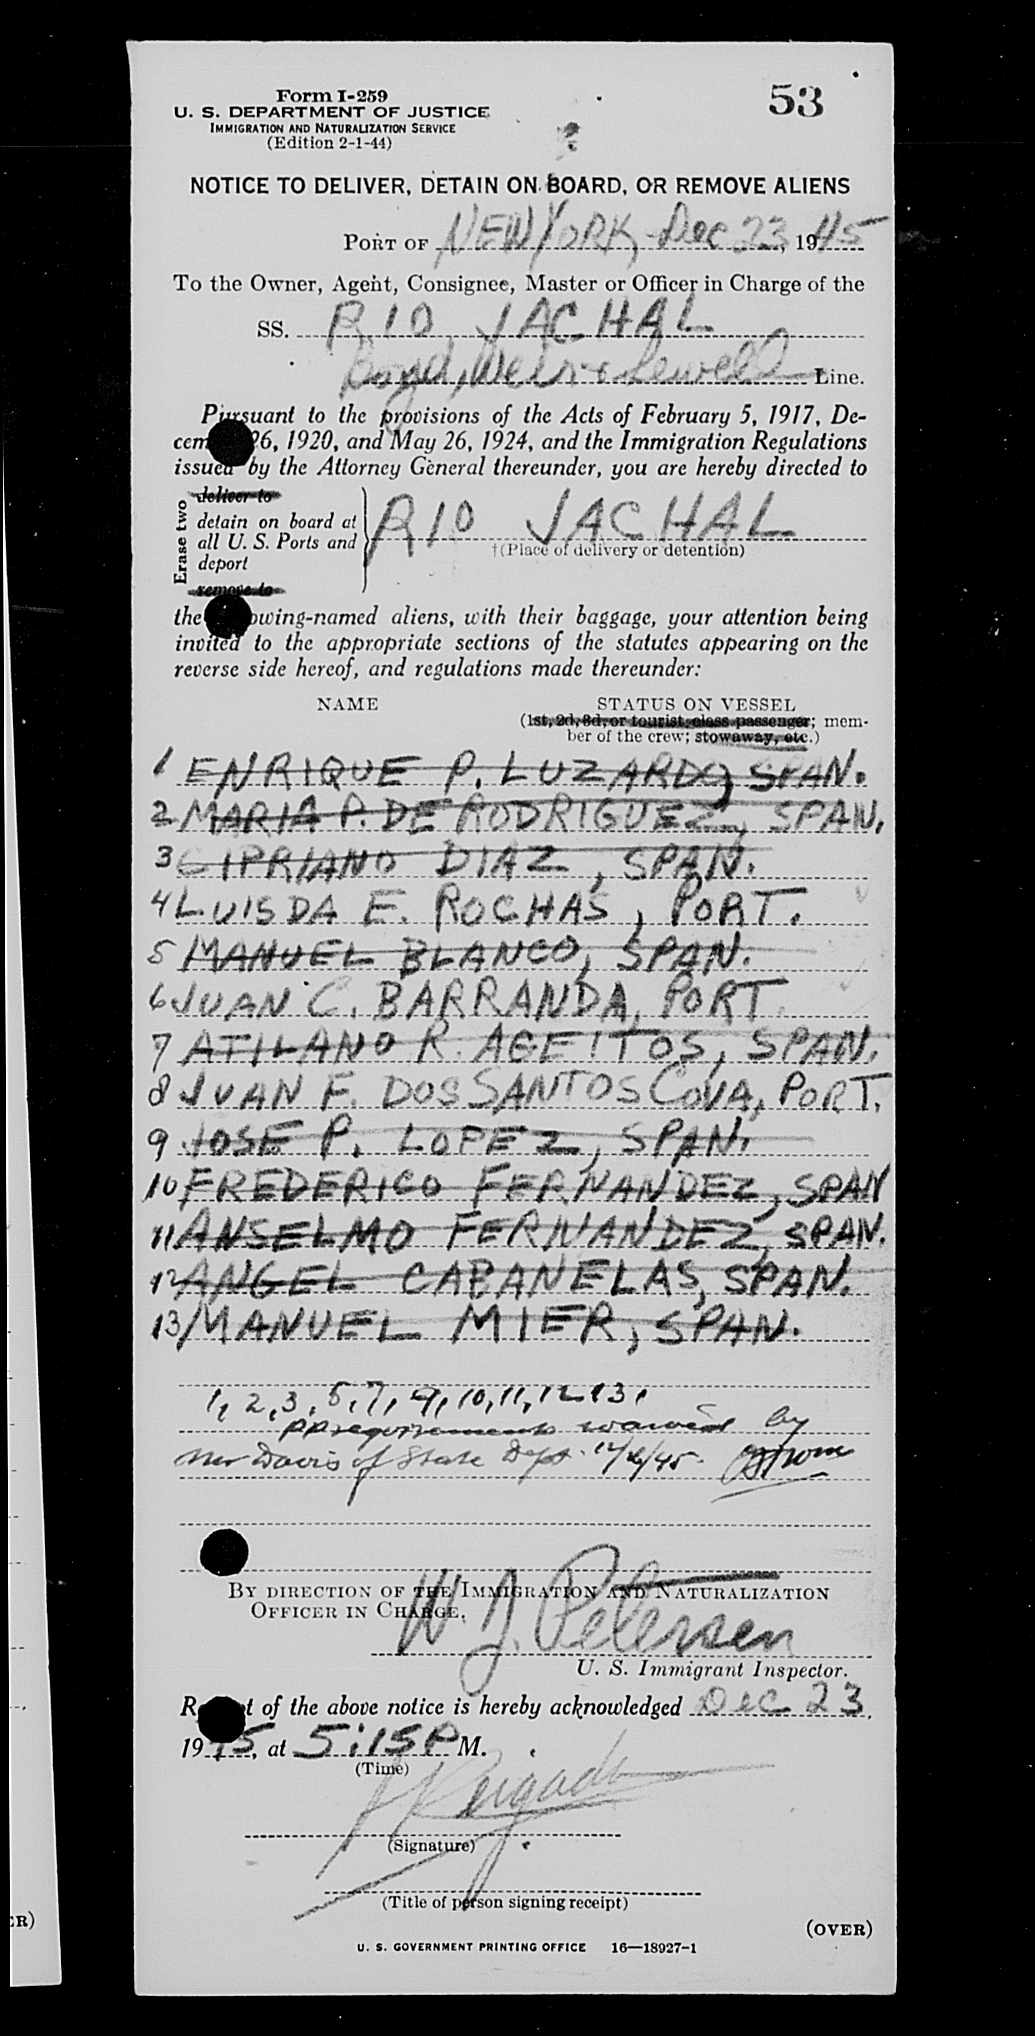 53
Form I-259
U. S. DEPARTMENT OF JUSTICE
IMMIGRATION AND NATURALIZATION SERVICE
(Edition 2-1-44)
NOTICE TO DELIVER, DETAIN ON BOARD, OR REMOVE ALIENS
PORT OF NEW YORK, Dec 23, 1945
To the Owner, Agent, Consignee, Master or Officer in Charge of the
SS. RIO JACHAL
Boyd, Weir & Sewell Line.
Pursuant to the provisions of the Acts of February 5, 1917, De-
cem 26, 1920, and May 26, 1924, and the Immigration Regulations
issued by the Attorney General thereunder, you are hereby directed to
Erase two
deliver to
detain on board at
all U. S. Ports and
deport
remove to
RIO JACHAL
†(Place of delivery or detention)
the owing-named aliens, with their baggage, your attention being
invited to the appropriate sections of the statutes appearing on the
reverse side hereof, and regulations made thereunder:
NAME STATUS ON VESSEL
(1st, 2d, 3d, or tourist class passenger; mem-
ber of the crew; stowaway, etc.)
1 ENRIQUE P. LUZARDO, SPAN.
2 MARIA P. DE RODRIGUEZ, SPAN.
3 CIPRIANO DIAZ, SPAN.
4 LUISDA E. ROCHAS, PORT.
5 MANUEL BLANCO, SPAN.
6 JUAN C. BARRANDA, PORT.
7 ATILANO R. AGEITOS, SPAN.
8 JUAN F. DOS SANTOS COVA, PORT.
9 JOSE P. LOPEZ, SPAN.
10 FREDERICO FERNANDEZ, SPAN
11 ANSELMO FERNANDEZ, SPAN.
12 ANGEL CABANELAS, SPAN.
13 MANUEL MIER, SPAN.
1, 2, 3, 5, 7, 9, 10, 11, 12 13,
PP requirements waived by
Davis of State Dept.
BY DIRECTION OF THE IMMIGRATION AND NATURALIZATION
OFFICER IN CHARGE.
W J. Petersen
U. S. Immigrant Inspector.
R t of the above notice is hereby acknowledged Dec 23,
1945, at 5:15 P M.
(Time)
(Signature)
(Title of person signing receipt)
(OVER)
U. S. GOVERNMENT PRINTING OFFICE 16—18927-1
ER)